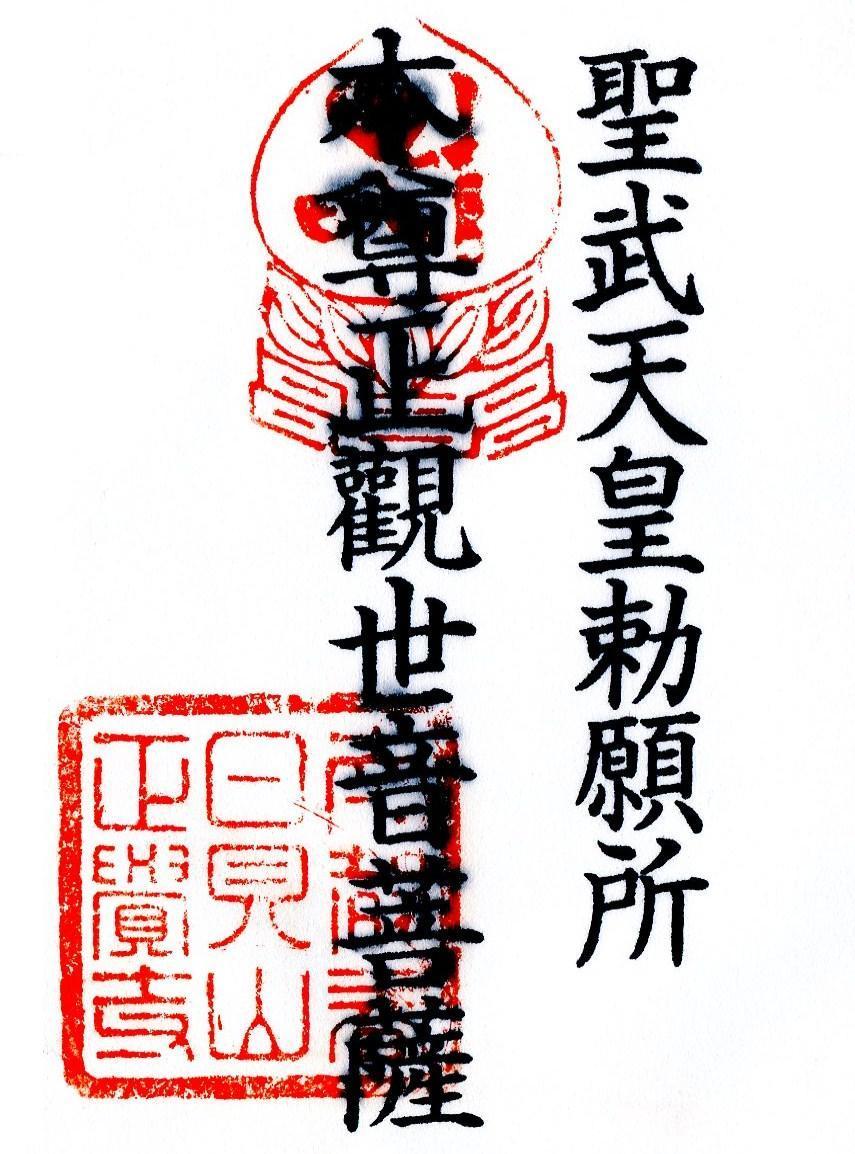 聖武天皇勅願所
本尊正觀世音菩薩
日見山
正覺寺